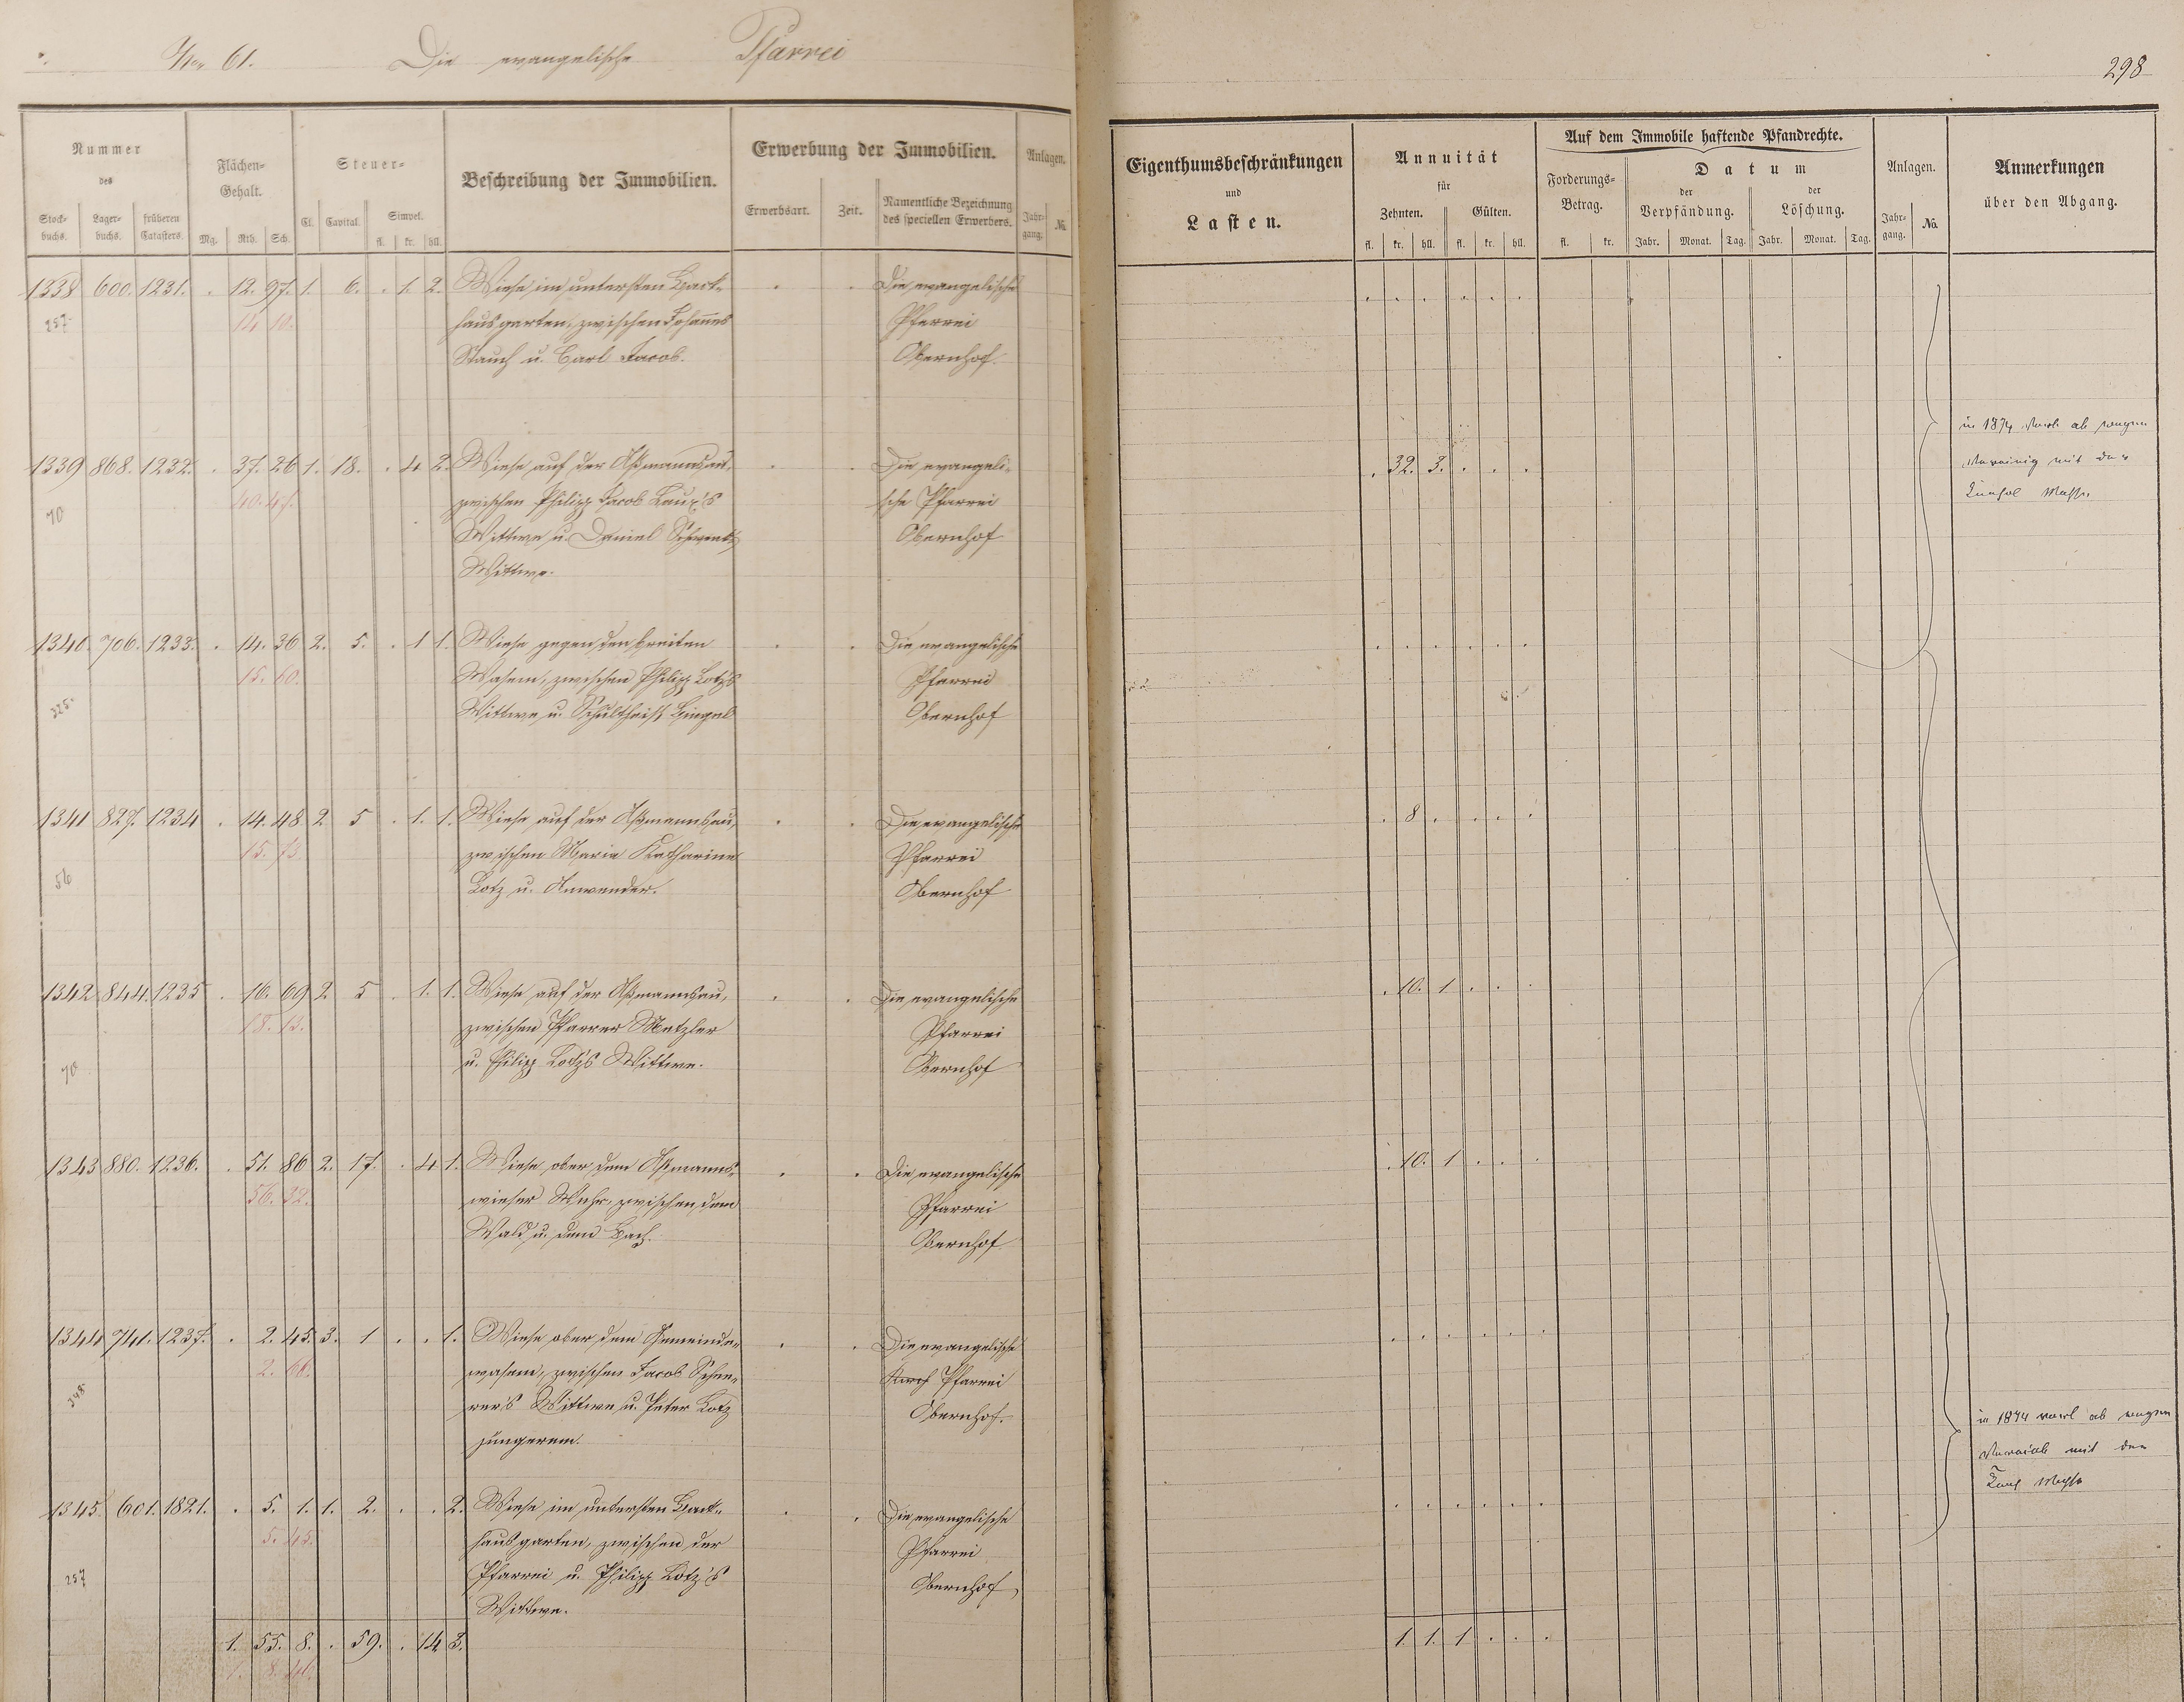 No 61. Die evangelische Pfarrei
298
Nummer des
Stock-buchs. Lager-buchs. früheren Catasters.
Flächen-Gehalt.
Mg. Rth. Sch.
Steuer-
Cl. Capital. Simpel. fl. kr. hll.
Beschreibung der Immobilien.
Erwerbung der Immobilien.
Erwerbsart. Zeit. Namentliche Bezeichnung des speciellen Erwerbers.
Anlagen.
Jahr-gang. No.
Eigenthumsbeschränkungen und Lasten.
Annuität für
Zehnten. Gülten.
fl. kr. hll. fl. kr. hll.
Auf dem Immobile haftende Pfandrechte.
Forderungs-Betrag. fl. kr.
Datum
der Verpfändung. der Löschung.
Jahr. Monat. Tag. Jahr. Monat. Tag.
Anlagen.
Jahr-gang. No.
Anmerkungen über den Abgang.
1338 600. 1231. . 12. 97. 1. 6. . 1. 2. Wiese im untersten Back- . . Die evangelische . . . . . .
257 14. 10. hausgarten, zwischen Johannes Pfarrei
Stauch u. Carl Jacob. Obernhof.
in 1874 ab wegen
1339 868. 1232. . 37. 26 1. 18. . 4. 2. Wiese auf der Aßmannsau, . . Die evangeli- . 32. 3. . . .
mit der
70 zwischen Philipp Jacob Laux's sche Pfarrei
Wittwe u. Daniel Obernhof
Wittwe.
1340. 706. 1233. . 14. 36 2. 5. . 1 1. Wiese gegen den breiten . . Die evangelische . . . . . .
15. 60. Wasem, zwischen Philipp Lotz's Pfarrei
325. Wittwe u. Schultheiß Obernhof
1341 827. 1234 . 14. 48 2. 5 . 1. 1. Wiese auf der Aßmannsau, . . Die evangelische . 8 . . . .
15. 73. zwischen Maria Katharina Pfarrei
56 Lotz u. Anwender. Obernhof
1342 844. 1235 . 16. 69 2. 5 . 1. 1. Wiese auf der Aßmannsau, . . Die evangelische . 10. 1 . . .
18. 13. zwischen Pfarrer Metzler Pfarrei
70 u. Philipp Lotz's Wittwe. Obernhof
1343 880. 1236. . 51. 86 2. 17. . 4. 1. Wiese ober dem Aßmanns- . . Die evangelische . 10. 1 . . .
56. 32. wieser Wehr, zwischen dem Pfarrei
Wald u. dem Bach. Obernhof
1344 741. 1237. . 2. 45. 3. 1 . . 1. Wiese ober dem Gemeinde- . . Die evangelische . . . . . .
2. 66. wasem, zwischen Jacob Scheu- Pfarrei
348 rer's Wittwe u. Peter Lotz Obernhof.
jüngerem.
in 1874 ab wegen
mit der
1345. 601. 1821. . 5. 1. 1. 2. . . 2. Wiese im untersten Back- . . Die evangelische . . . . . .
5. 45. hausgarten, zwischen der Pfarrei
257 Pfarrei u. Philipp Lotz's Obernhof
Wittwe.
1. 55. 8. . 59. . 14 3. 1. 1. 1 . . .